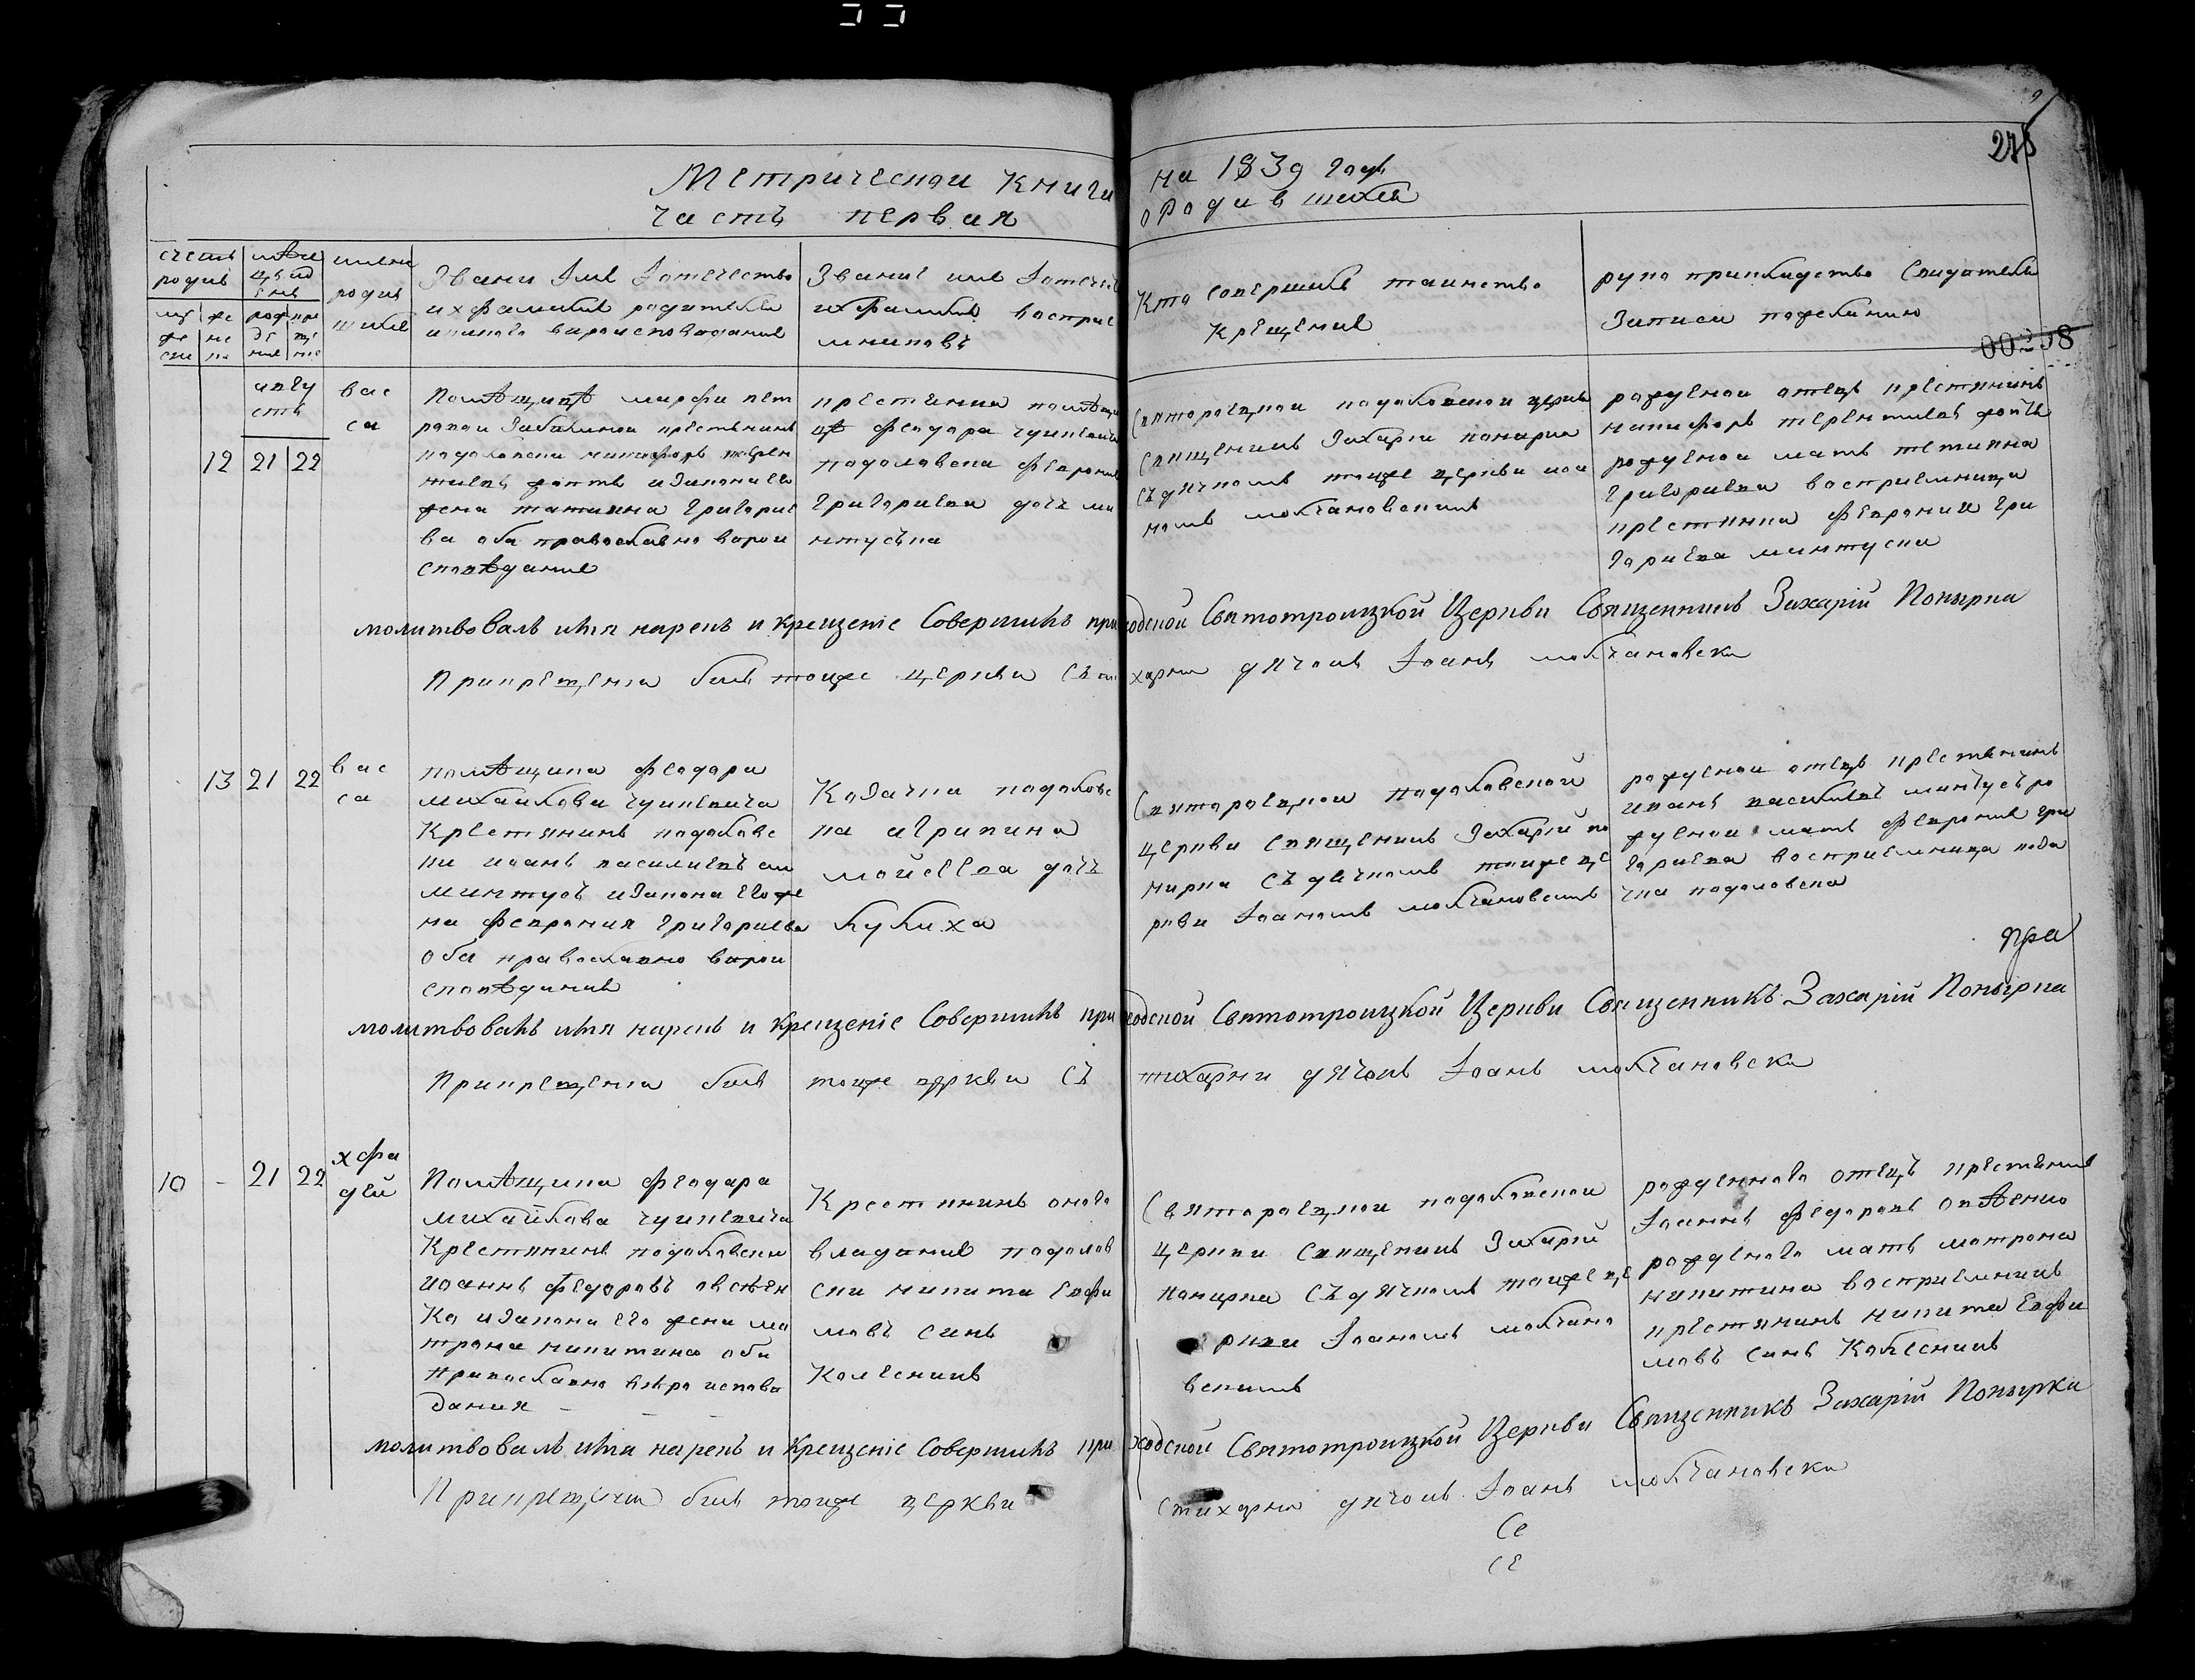 Метрической Книги
часть первая
на 1839 годъ
о родившихся
275
00258
счетъ родив
муже ски
же не ка
мѣся цъ и д енъ
рож де ние
кре ще ние
имена родив шихся
Звани Имя Iотечество
их фамилия родителей
и какого вироисповедания
Звание имя Iотечест
их фамилия восприе
мниковъ
Кто совершилъ таинство
Крещения
рукоприкладство Свидителей
Записи по желанию
авгу
стъ
12 21 22
вас
са
помѣщицѣ марфи пет
ровой Забелиной крестянинъ
подоловски никифоръ терен
тиевъ и закона его
жена татияна григорие
ва оба православно вирои
споведание
крестянка помѣщи
цѣ феодора
подоловска феврония
григориева дочъ ми
нтуська
Святотроецкои подоловской церкви
священикъ Захарий поныркa
съ дячкомъ тоиже церкви иоа
номъ молчановскимъ
рожденой отецъ крестянинъ
никифоръ терентиевъ
рожденой мать тетияна
григориева восприемница
крестянка феврония гри
гориева минтуска
молитвовалъ имя нарекъ и крещенiе Совершилъ приходской Святотроицкой Церкви Священникъ Захарiй Понырка
При крещении билъ тоиже церкви Стихарни дячокъ Iоанъ молчановски
13 21 22
вас
са
помѣщика феодора
михаилова
Крестянинъ подоловс
ки иоанъ василиевъ си
минтусъ и закона его же
на феврония григориева
оба православно вирои
сповединия
Козачка подоловс
ка агрипина
мойсеева дочъ
кулиха
Святотроецкои подоловской
церкви священикъ Захарий по
нирка съ дячкомъ тоиже це
ркви Iоаномъ молчановскимъ
рожденой отецъ крестянинъ
иванъ василиевъ минтусъ ро
жденой мать феврония гри
гориева восприемница коза
чка подоловска
молитвовалъ имя нарекъ и крещенiе Совершилъ приходской Святотроицкой Церкви Священникъ Захарiй Понырка
При крещении билъ тоиже церкви Стихарни дячокъ Iоанъ молчановски
10 - 21 22
хфа
дей
Помѣщика феодора
михайлова
Крестянинъ подоловски
иоаннъ федоровъ овсѣен
ко и закона его жена ма
трона никитина оба
православно вѣроиспове
дания
Крестянинъ оного
владания подолов
ски никита евфи
мовъ синъ
Колесникъ
Святотроецкои подоловской
церкви священикъ Захарий
понирка съ дячкомъ тоиже це
ркви Iоаномъ молчано
вскимъ
рожденного отецъ крестянинъ
Iоаннъ федоровъ овѣенко
рожденого мать матрона
никитина восприемникъ
крестянинъ никита Евфи
мовъ синъ Колесникъ
молитвовалъ имя нарекъ и крещенiе Совершилъ приходской Святотроицкой Церкви Священникъ Захарiй Понырка
При крещении билъ тоиже церкви Стихарни дячокъ Iоанъ молчановски
Се
се